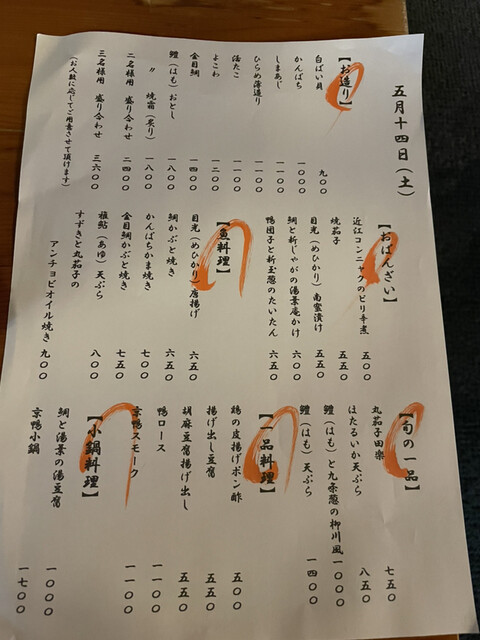 五月十四日(土)
【お造り】
白ばい貝 九〇〇
かんぱち 一〇〇〇
しまあじ 一一〇〇
ひらめ薄造り 一一〇〇
活たこ 一一〇〇
よこわ 一二〇〇
金目鯛 一四〇〇
鱧(はも)おとし 一八〇〇
〃 焼霜(炙り) 一八〇〇
二名様用 盛り合わせ 二四〇〇
三名様用 盛り合わせ 三六〇〇
(お人数に応じてご用意させて頂けます)
【おばんざい】
近江コンニャクのピリ辛煮 五〇〇
焼茄子 五五〇
目光(めひかり)南蛮漬け 五五〇
鯛と新じゃがの湯葉庵かけ 六〇〇
鴨団子と新玉葱のたいたん 六五〇
【魚料理】
目光(めひかり)唐揚げ 六五〇
鯛かぶと焼き 六五〇
かんぱちかま焼き 七〇〇
金目鯛かぶと焼き 七五〇
稚鮎(あゆ)天ぷら 八〇〇
すずきと丸茄子の
アンチョビオイル焼き 九〇〇
【旬の一品】
丸茄子田楽 七五〇
ほたるいか天ぷら 八五〇
鱧(はも)と九条葱の柳川風 一〇〇〇
鱧(はも)天ぷら 一四〇〇
【一品料理】
鶏の皮揚げポン酢 五〇〇
揚げ出し豆腐 五五〇
胡麻豆腐揚げ出し 五五〇
鴨ロース 一一〇〇
京鴨スモーク 一一〇〇
【小鍋料理】
鯛と湯葉の湯豆腐 一〇〇〇
京鴨小鍋 一七〇〇